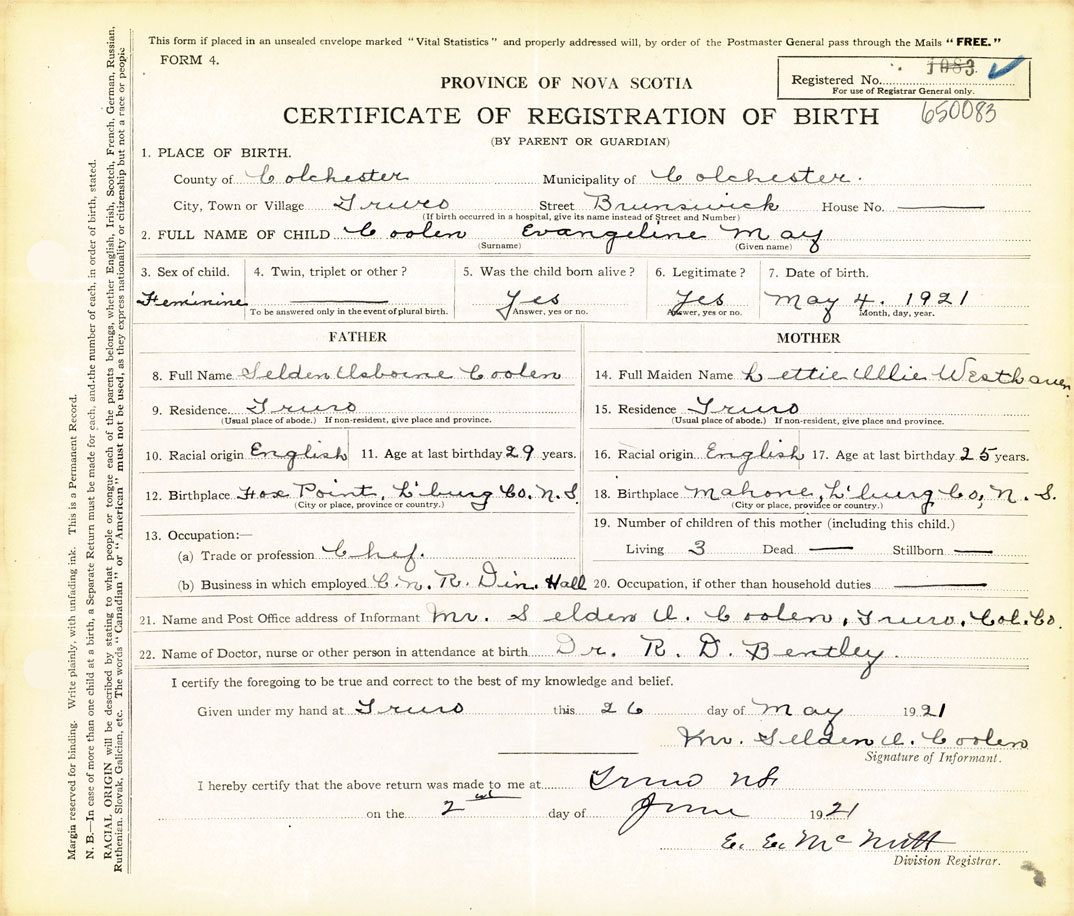 This form if placed in an unsealed envelope marked "Vital Statistics" and properly addressed will, by order of the Postmaster General pass through the Mails "FREE."
FORM 4.
PROVINCE OF NOVA SCOTIA
Registered No. 1083
For use of Registrar General only.
CERTIFICATE OF REGISTRATION OF BIRTH
650083
(BY PARENT OR GUARDIAN)
1. PLACE OF BIRTH.
County of Colchester Municipality of Colchester.
City, Town or Village Truro Street Brunswick House No.
(If birth occurred in a hospital, give its name instead of Street and Number)
2. FULL NAME OF CHILD Coolen Evangeline May
(Surname) (Given name)
3. Sex of child. 4. Twin, triplet or other? 5. Was the child born alive? 6. Legitimate? 7. Date of birth.
Feminine Yes Yes May 4. 1921
To be answered only in the event of plural birth. Answer, yes or no. Answer, yes or no. Month, day, year.
FATHER
8. Full Name Selden Osborne Coolen
9. Residence Truro
(Usual place of abode.) If non-resident, give place and province.
10. Racial origin English 11. Age at last birthday 29 years.
12. Birthplace Fox Point, L'burg Co. N.S.
(City or place, province or country.)
13. Occupation:—
(a) Trade or profession Chef.
(b) Business in which employed C.N.R. Din. Hall
MOTHER
14. Full Maiden Name Lettie Ollie Westhaver
15. Residence Truro
(Usual place of abode.) If non-resident, give place and province.
16. Racial origin English 17. Age at last birthday 25 years.
18. Birthplace Mahone, L'burg Co, N.S.
(City or place, province or country.)
19. Number of children of this mother (including this child.)
Living 3 Dead — Stillborn —
20. Occupation, if other than household duties
21. Name and Post Office address of Informant Mr. Selden O. Coolen, Truro, Col. Co.
22. Name of Doctor, nurse or other person in attendance at birth Dr. R. D. Bentley.
I certify the foregoing to be true and correct to the best of my knowledge and belief.
Given under my hand at Truro this 26 day of May 1921
Mr. Selden O. Coolen
Signature of Informant.
I hereby certify that the above return was made to me at Truro NS
on the 2 day of June 1921
E. E. McNutt
Division Registrar.
Margin reserved for binding. Write plainly, with unfading ink. This is a Permanent Record.
N. B.—In case of more than one child at a birth, a Separate Return must be made for each, and the number of each, in order of birth, stated.
RACIAL ORIGIN will be described by stating to what people or tongue each of the parents belongs, whether English, Irish, Scotch, French, German, Russian,
Ruthenian, Slovak, Galician, etc. The words "Canadian" or "American" must not be used, as they express nationality or citizenship but not a race or people